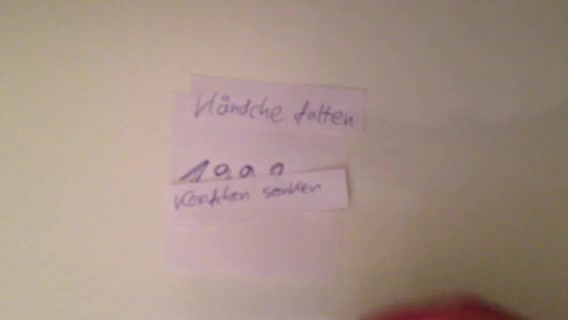 Händche falten
1000
Köpfchen senken